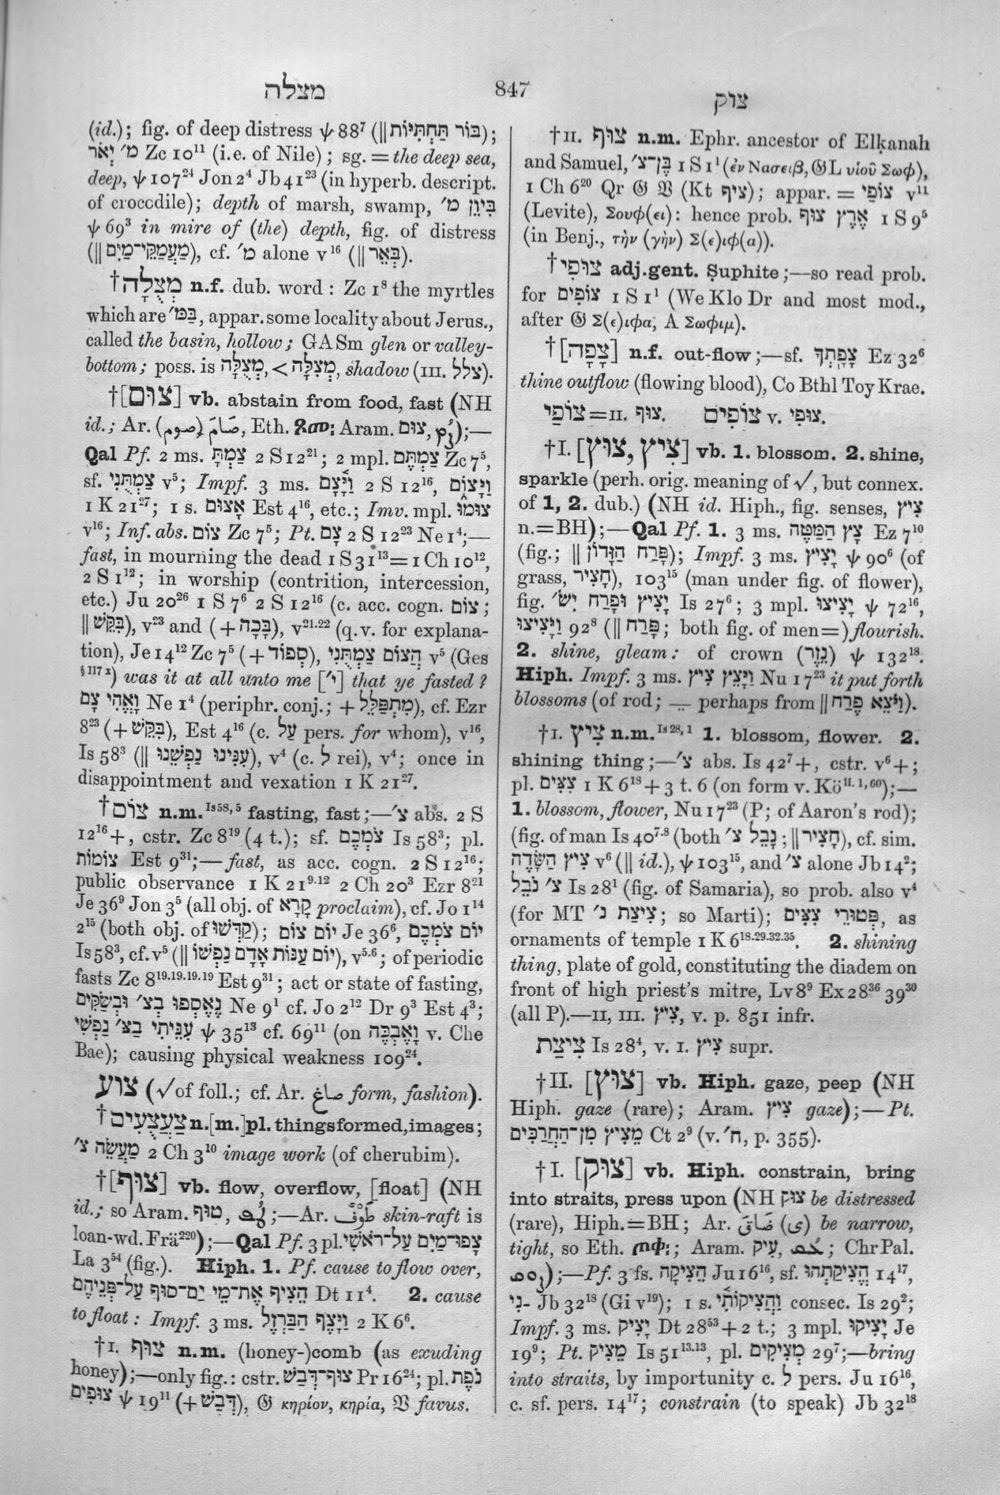 מצלה
847
צוק
(id.); fig. of deep distress ψ 88⁷ (‖ בּוֹר תַּחְתִּיּוֹת);
מ׳ יְאֹר Zc 10¹¹ (i.e. of Nile); sg. = the deep sea,
deep, ψ 107²⁴ Jon 2⁴ Jb 41²³ (in hyperb. descript.
of crocodile); depth of marsh, swamp, בִּיוֵן מ׳
ψ 69³ in mire of (the) depth, fig. of distress
(‖ מַעֲמַקֵּי־מַיִם), cf. מ׳ alone v¹⁶ (‖ בְּאֵר).
†מְצֻלָה n.f. dub. word: Zc 1⁸ the myrtles
which are בַּמּ׳, appar. some locality about Jerus.,
called the basin, hollow; GASm glen or valley-
bottom; poss. is מְצֻלָּה, < מְצִלָּה, shadow (III. צלל).
†[צוּם] vb. abstain from food, fast (NH
id.; Ar. صَامَ (صوم), Eth. ጾመ: Aram. צוּם, );—
Qal Pf. 2 ms. צַמְתָּ 2 S 12²¹; 2 mpl. צַמְתֶּם Zc 7⁵,
sf. צַמְתֻּנִי v⁵; Impf. 3 ms. וַיָּ֫צָם 2 S 12¹⁶, וַיָּצוֹם
1 K 21²⁷; 1 s. אָצוּם Est 4¹⁶, etc.; Imv. mpl. צוּמוּ
v¹⁶; Inf. abs. צוֹם Zc 7⁵; Pt. צָם 2 S 12²³ Ne 1⁴;—
fast, in mourning the dead 1 S 31¹³ = 1 Ch 10¹²,
2 S 1¹²; in worship (contrition, intercession,
etc.) Ju 20²⁶ 1 S 7⁶ 2 S 12¹⁶ (c. acc. cogn. צוֹם;
‖ בִּקֵּשׁ), v²³ and (+ בָּכָה), v²¹·²² (q.v. for explana-
tion), Je 14¹² Zc 7⁵ (+ סָפוֹד), הֲצוֹם צַמְתֻּנִי v⁵ (Ges
§ 117 x) was it at all unto me [י׳] that ye fasted?
וָאֱהִי צָם Ne 1⁴ (periphr. conj.; + מִתְפַּלֵּל), cf. Ezr
8²³ (+ בִּקֵּשׁ), Est 4¹⁶ (c. עַל pers. for whom), v¹⁶,
Is 58³ (‖ עִנִּינוּ נַפְשֵׁנוּ), v⁴ (c. לְ rei), v⁴; once in
disappointment and vexation 1 K 21²⁷.
†צוֹם n.m. Is 58, 5 fasting, fast;—צ׳ abs. 2 S
12¹⁶ +, cstr. Zc 8¹⁹ (4 t.); sf. צֹמְכֶם Is 58³; pl.
צוֹמוֹת Est 9³¹;—fast, as acc. cogn. 2 S 12¹⁶;
public observance 1 K 21⁹·¹² 2 Ch 20³ Ezr 8²¹
Je 36⁹ Jon 3⁵ (all obj. of קָרָא proclaim), cf. Jo 1¹⁴
2¹⁵ (both obj. of קַדְּשׁוּ); יוֹם צוֹם Je 36⁶, יוֹם צֹמְכֶם
Is 58³, cf. v⁵ (‖ יוֹם עַנּוֹת אָדָם נַפְשׁוֹ), v⁵·⁶; of periodic
fasts Zc 8¹⁹·¹⁹·¹⁹·¹⁹ Est 9³¹; act or state of fasting,
נֶאֶסְפוּ בְצ׳ וּבְשַׂקִּים Ne 9¹ cf. Jo 2¹² Dn 9³ Est 4³;
עִנֵּיתִי בַצ׳ נַפְשִׁי ψ 35¹³ cf. 69¹¹ (on וָאֶבְכֶּה v. Che
Bae); causing physical weakness 109²⁴.
צוע (√ of foll.; cf. Ar. صاغ form, fashion).
†צַעֲצֻעִים n.[m.]pl. things formed, images;
מַעֲשֵׂה צ׳ 2 Ch 3¹⁰ image work (of cherubim).
†[צוּף] vb. flow, overflow, [float] (NH
id.; so Aram. טוּף, ;—Ar. طَوْفٌ skin-raft is
loan-wd. Frä²²⁰);—Qal Pf. 3 pl. צָפוּ־מַיִם עַל־רֹאשִׁי
La 3⁵⁴ (fig.). Hiph. 1. Pf. cause to flow over,
הֵצִיף אֶת־מֵי יַם־סוּף עַל־פְּנֵיהֶם Dt 11⁴. 2. cause
to float: Impf. 3 ms. וַיָּצֶף הַבַּרְזֶל 2 K 6⁶.
†I. צוּף n.m. (honey-)comb (as exuding
honey);—only fig.: cstr. צוּף־דְּבַשׁ Pr 16²⁴; pl. נֹפֶת
צוּפִים ψ 19¹¹ (+ דְּבַשׁ), 𝔊 κηρίον, κηρία, 𝔙 favus.
†II. צוּף n.m. Ephr. ancestor of Elḳanah
and Samuel, בֶּן־צ׳ 1 S 1¹ (ἐν Νασειβ, 𝔊L υἱοῦ Σωφ),
1 Ch 6²⁰ Qr 𝔊 𝔙 (Kt ציף); appar. = צוֹפַי v¹¹
(Levite), Σουφ(ει): hence prob. אֶרֶץ צוּף 1 S 9⁵
(in Benj., τὴν (γὴν) Σ(ε)ιφ(α)).
†צוּפִי adj.gent. Ṣuphite;—so read prob.
for צוֹפִים 1 S 1¹ (We Klo Dr and most mod.,
after 𝔊 Σ(ε)ιφα, A Σωφιμ).
†[צָפָה] n.f. out-flow;—sf. צָפָתְךָ Ez 32⁶
thine outflow (flowing blood), Co Bthl Toy Krae.
צוֹפַי = II. צוּף. צוֹפִים v. צוּפִי.
†I. [צִיץ, צוּץ] vb. 1. blossom. 2. shine,
sparkle (perh. orig. meaning of √, but connex.
of 1, 2. dub.) (NH id. Hiph., fig. senses, צִיץ
n. = BH);—Qal Pf. 1. 3 ms. צָץ הַמַּטֶּה Ez 7¹⁰
(fig.; ‖ פָּרַח הַזָּדוֹן); Impf. 3 ms. יָצִיץ ψ 90⁶ (of
grass, חָצִיר), 103¹⁵ (man under fig. of flower),
fig. יָצִיץ וּפָרַח יִשׂ׳ Is 27⁶; 3 mpl. יָצִיצוּ ψ 72¹⁶,
וַיָּצִיצוּ 92⁸ (‖ פָּרַח; both fig. of men =) flourish.
2. shine, gleam: of crown (נֵזֶר) ψ 132¹⁸.
Hiph. Impf. 3 ms. וַיָּצֵץ צִיץ Nu 17²³ it put forth
blossoms (of rod; — perhaps from ‖ וַיֹּצֵא פֶרַח).
†I. צִיץ n.m. Is 28, 1 1. blossom, flower. 2.
shining thing;—צ׳ abs. Is 42⁷ +, cstr. v⁶ +;
pl. צִצִּים 1 K 6¹⁸ + 3 t. 6 (on form v. Kö II. 1, 60);—
1. blossom, flower, Nu 17²³ (P; of Aaron's rod);
(fig. of man Is 40⁷·⁸ (both נָבֵל צ׳; ‖ חָצִיר), cf. sim.
צִיץ הַשָּׂדֶה v⁶ (‖ id.), ψ 103¹⁵, and צ׳ alone Jb 14²;
צ׳ נֹבֵל Is 28¹ (fig. of Samaria), so prob. also v⁴
(for MT צִיצַת נ׳; so Marti); פְּטוּרֵי צִצִּים, as
ornaments of temple 1 K 6¹⁸·²⁹·³²·³⁵. 2. shining
thing, plate of gold, constituting the diadem on
front of high priest's mitre, Lv 8⁹ Ex 28³⁶ 39³⁰
(all P).—II, III. צִיץ, v. p. 851 infr.
צִיצַת Is 28⁴, v. I. צִיץ supr.
†II. [צוּץ] vb. Hiph. gaze, peep (NH
Hiph. gaze (rare); Aram. צִיץ gaze);—Pt.
מֵצִיץ מִן־הַחֲרַכִּים Ct 2⁹ (v. ח׳, p. 355).
†I. [צוּק] vb. Hiph. constrain, bring
into straits, press upon (NH צוּק be distressed
(rare), Hiph. = BH; Ar. ضَاقَ (ى) be narrow,
tight, so Eth. ጦቀ:; Aram. עִיק, ; ChrPal.
);—Pf. 3 fs. הֵצִיקָה Ju 16¹⁶, sf. הֱצִיקַתְהוּ 14¹⁷,
־נִי Jb 32¹⁸ (Gi v¹⁹); 1 s. וַהֲצִיקוֹתִי consec. Is 29²;
Impf. 3 ms. יָצִיק Dt 28⁵³ + 2 t.; 3 mpl. יָצִיקוּ Je
19⁹; Pt. מֵצִיק Is 51¹³·¹³, pl. מְצִיקִים 29⁷;—bring
into straits, by importunity c. לְ pers. Ju 16¹⁶,
c. sf. pers. 14¹⁷; constrain (to speak) Jb 32¹⁸